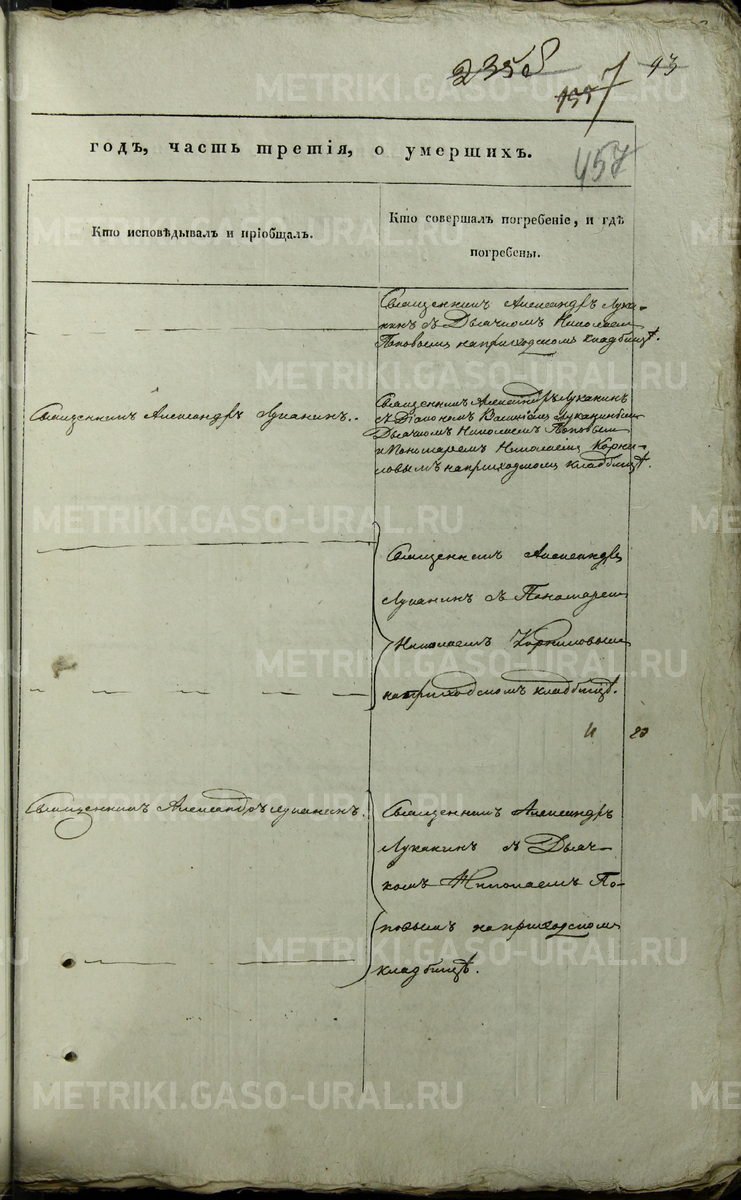 2358
157
93
457
годъ, часть третія, о умершихъ.
Кто исповѣдывалъ и пріобщалъ.
Кто совершалъ погребеніе, и гдѣ
погребены.
Священникъ Александръ Лука-
нинъ съ Дьячкомъ Николаемъ
Поповымъ на приходскомъ кладбищѣ.
Священникъ Александръ Луканинъ.
Священникъ Александръ Луканинъ
съ Діакономъ Луканинымъ
Дьячкомъ Николаемъ Поповымъ
и Пономаремъ Николаемъ Корни-
ловымъ на приходскомъ кладбищѣ.
Священникъ Александръ
Луканинъ съ Пономаремъ
Николаемъ Корниловымъ
на приходскомъ кладбищѣ.
Священникъ Александръ Луканинъ.
Священникъ Александръ
Луканинъ съ Дьяч-
комъ Николаемъ По-
повымъ на приходскомъ
кладбищѣ.
METRIKI.GASO-URAL.RU